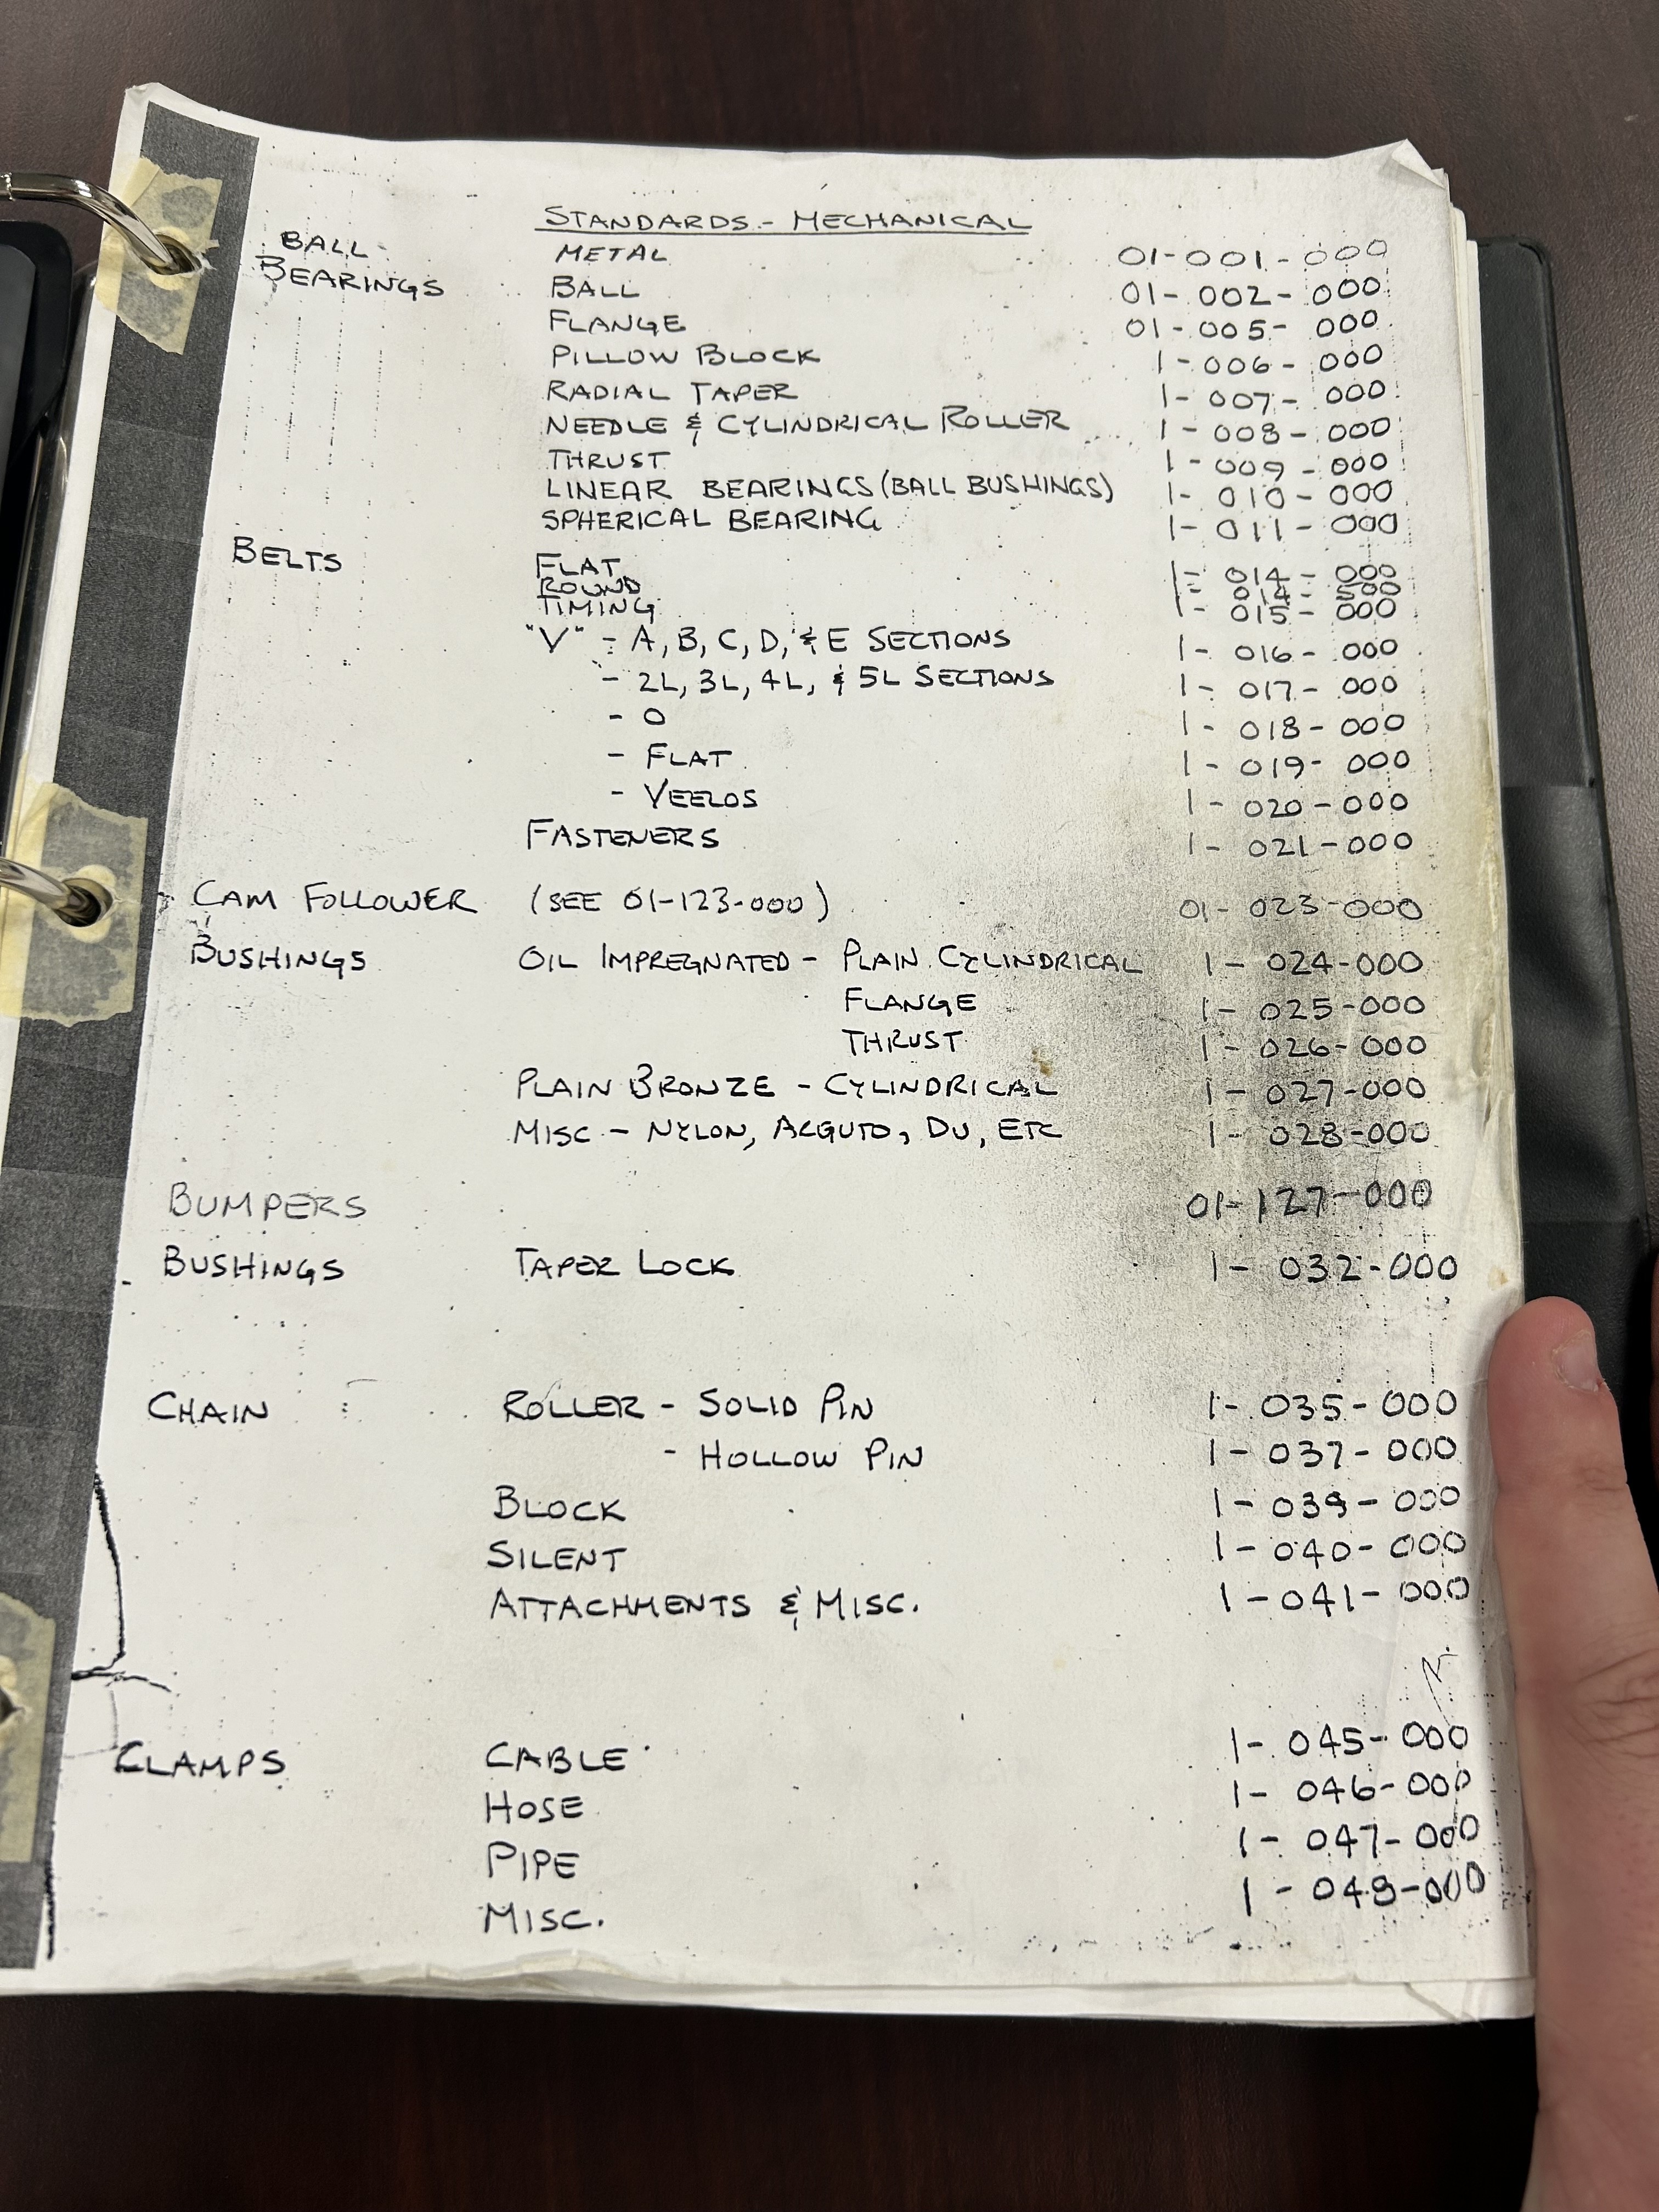 STANDARDS - MECHANICAL
BALL BEARINGS METAL 01-001-000
BALL 01-002-000
FLANGE 01-005-000
PILLOW BLOCK 1-006-000
RADIAL TAPER 1-007-000
NEEDLE & CYLINDRICAL ROLLER 1-008-000
THRUST 1-009-000
LINEAR BEARINGS (BALL BUSHINGS) 1-010-000
SPHERICAL BEARING 1-011-000
BELTS FLAT 1-014-000
ROUND 1-014-500
TIMING 1-015-000
"V" - A, B, C, D, & E SECTIONS 1-016-000
- 2L, 3L, 4L, & 5L SECTIONS 1-017-000
- O 1-018-000
- FLAT 1-019-000
- VEELOS 1-020-000
FASTENERS 1-021-000
CAM FOLLOWER (SEE 01-123-000) 01-023-000
BUSHINGS OIL IMPREGNATED - PLAIN CYLINDRICAL 1-024-000
FLANGE 1-025-000
THRUST 1-026-000
PLAIN BRONZE - CYLINDRICAL 1-027-000
MISC - NYLON, ACGUTO, DU, ETC 1-028-000
BUMPERS 01-127-000
BUSHINGS TAPER LOCK 1-032-000
CHAIN ROLLER - SOLID PIN 1-035-000
- HOLLOW PIN 1-037-000
BLOCK 1-039-000
SILENT 1-040-000
ATTACHMENTS & MISC. 1-041-000
CLAMPS CABLE 1-045-000
HOSE 1-046-000
PIPE 1-047-000
MISC. 1-048-000